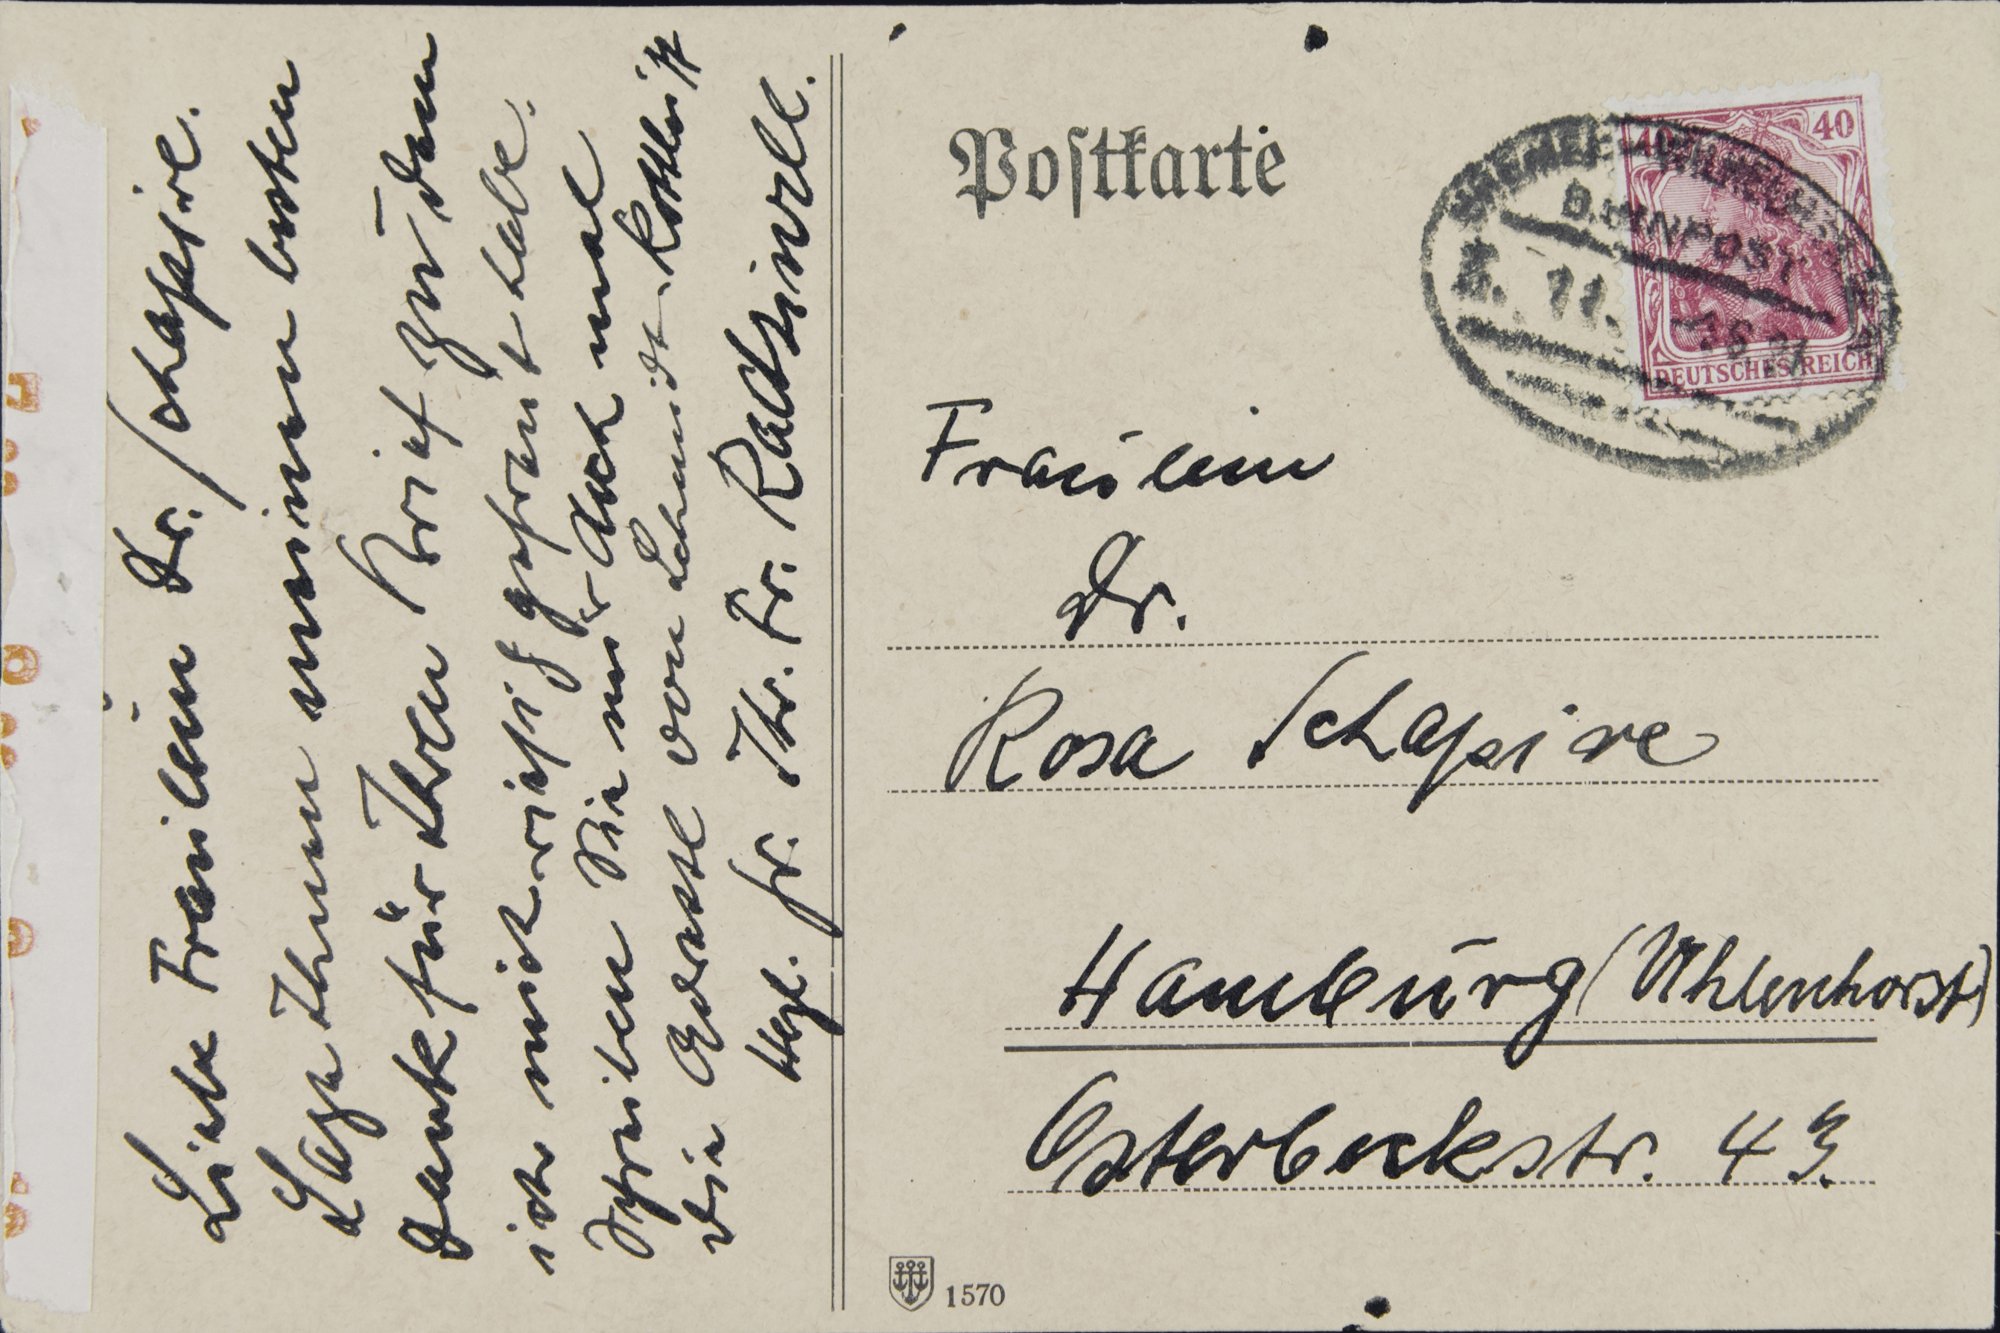 Liebe Fräulein Dr. Schapire.
Sage Ihnen meinen besten
Dank für Ihren Brief zu dem
ich mich riesig gefreut habe.
Schreiben Sie mir doch mal
die Adresse von Schmidt-Rottluff
Hzl. Gr. Ihr. Fr. Radziwill.
Postkarte
40 40
BAHNPOST
Z. 11.
DEUTSCHES REICH
Fräulein
Dr.
Rosa Schapire
Hamburg (Uhlenhorst)
Osterbeckstr. 43.
1570